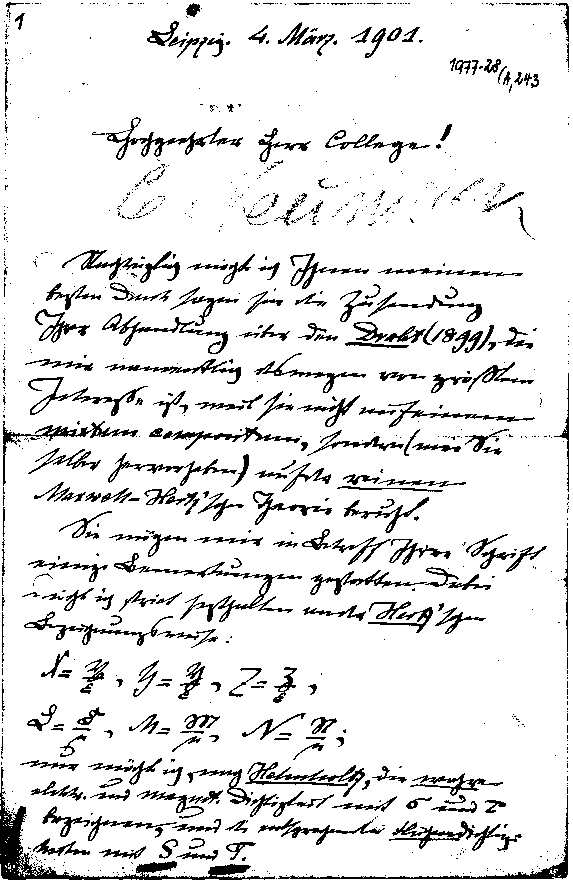 1
Leipzig. 4. März. 1901.
1977-28/A,243
Hochgeehrter Herr College!
C. Neumann
Nachträglich möcht ich Ihnen meinen
besten Dank sagen für die Zusendung
Ihrer Abhandlung über den Draht (1899), die
mir namentlich deswegen von größtem
Interesse ist, weil sie nicht auf einem
mixtum compositum, sondern (wie Sie
selber hervorheben) auf der reinen
Maxwell-Hertz'schen Theorie beruht.
Sie mögen mir in Betreff Ihrer Schrift
einige Bemerkungen gestatten. Dabei
möcht ich strict festhalten an der Hertz'schen
Bezeichnungsweise:
X = 𝔛/ε, Y = 𝔜/ε, Z = ℨ/ε;
L = 𝔏/μ, M = 𝔐/μ, N = 𝔑/μ;
nur möcht ich, nach Helmholtz, die wahre
elektr. und magnet. Dichtigkeit mit σ und τ
bezeichnen, und die entsprechenden Flächendichtig-
keiten mit S und T.